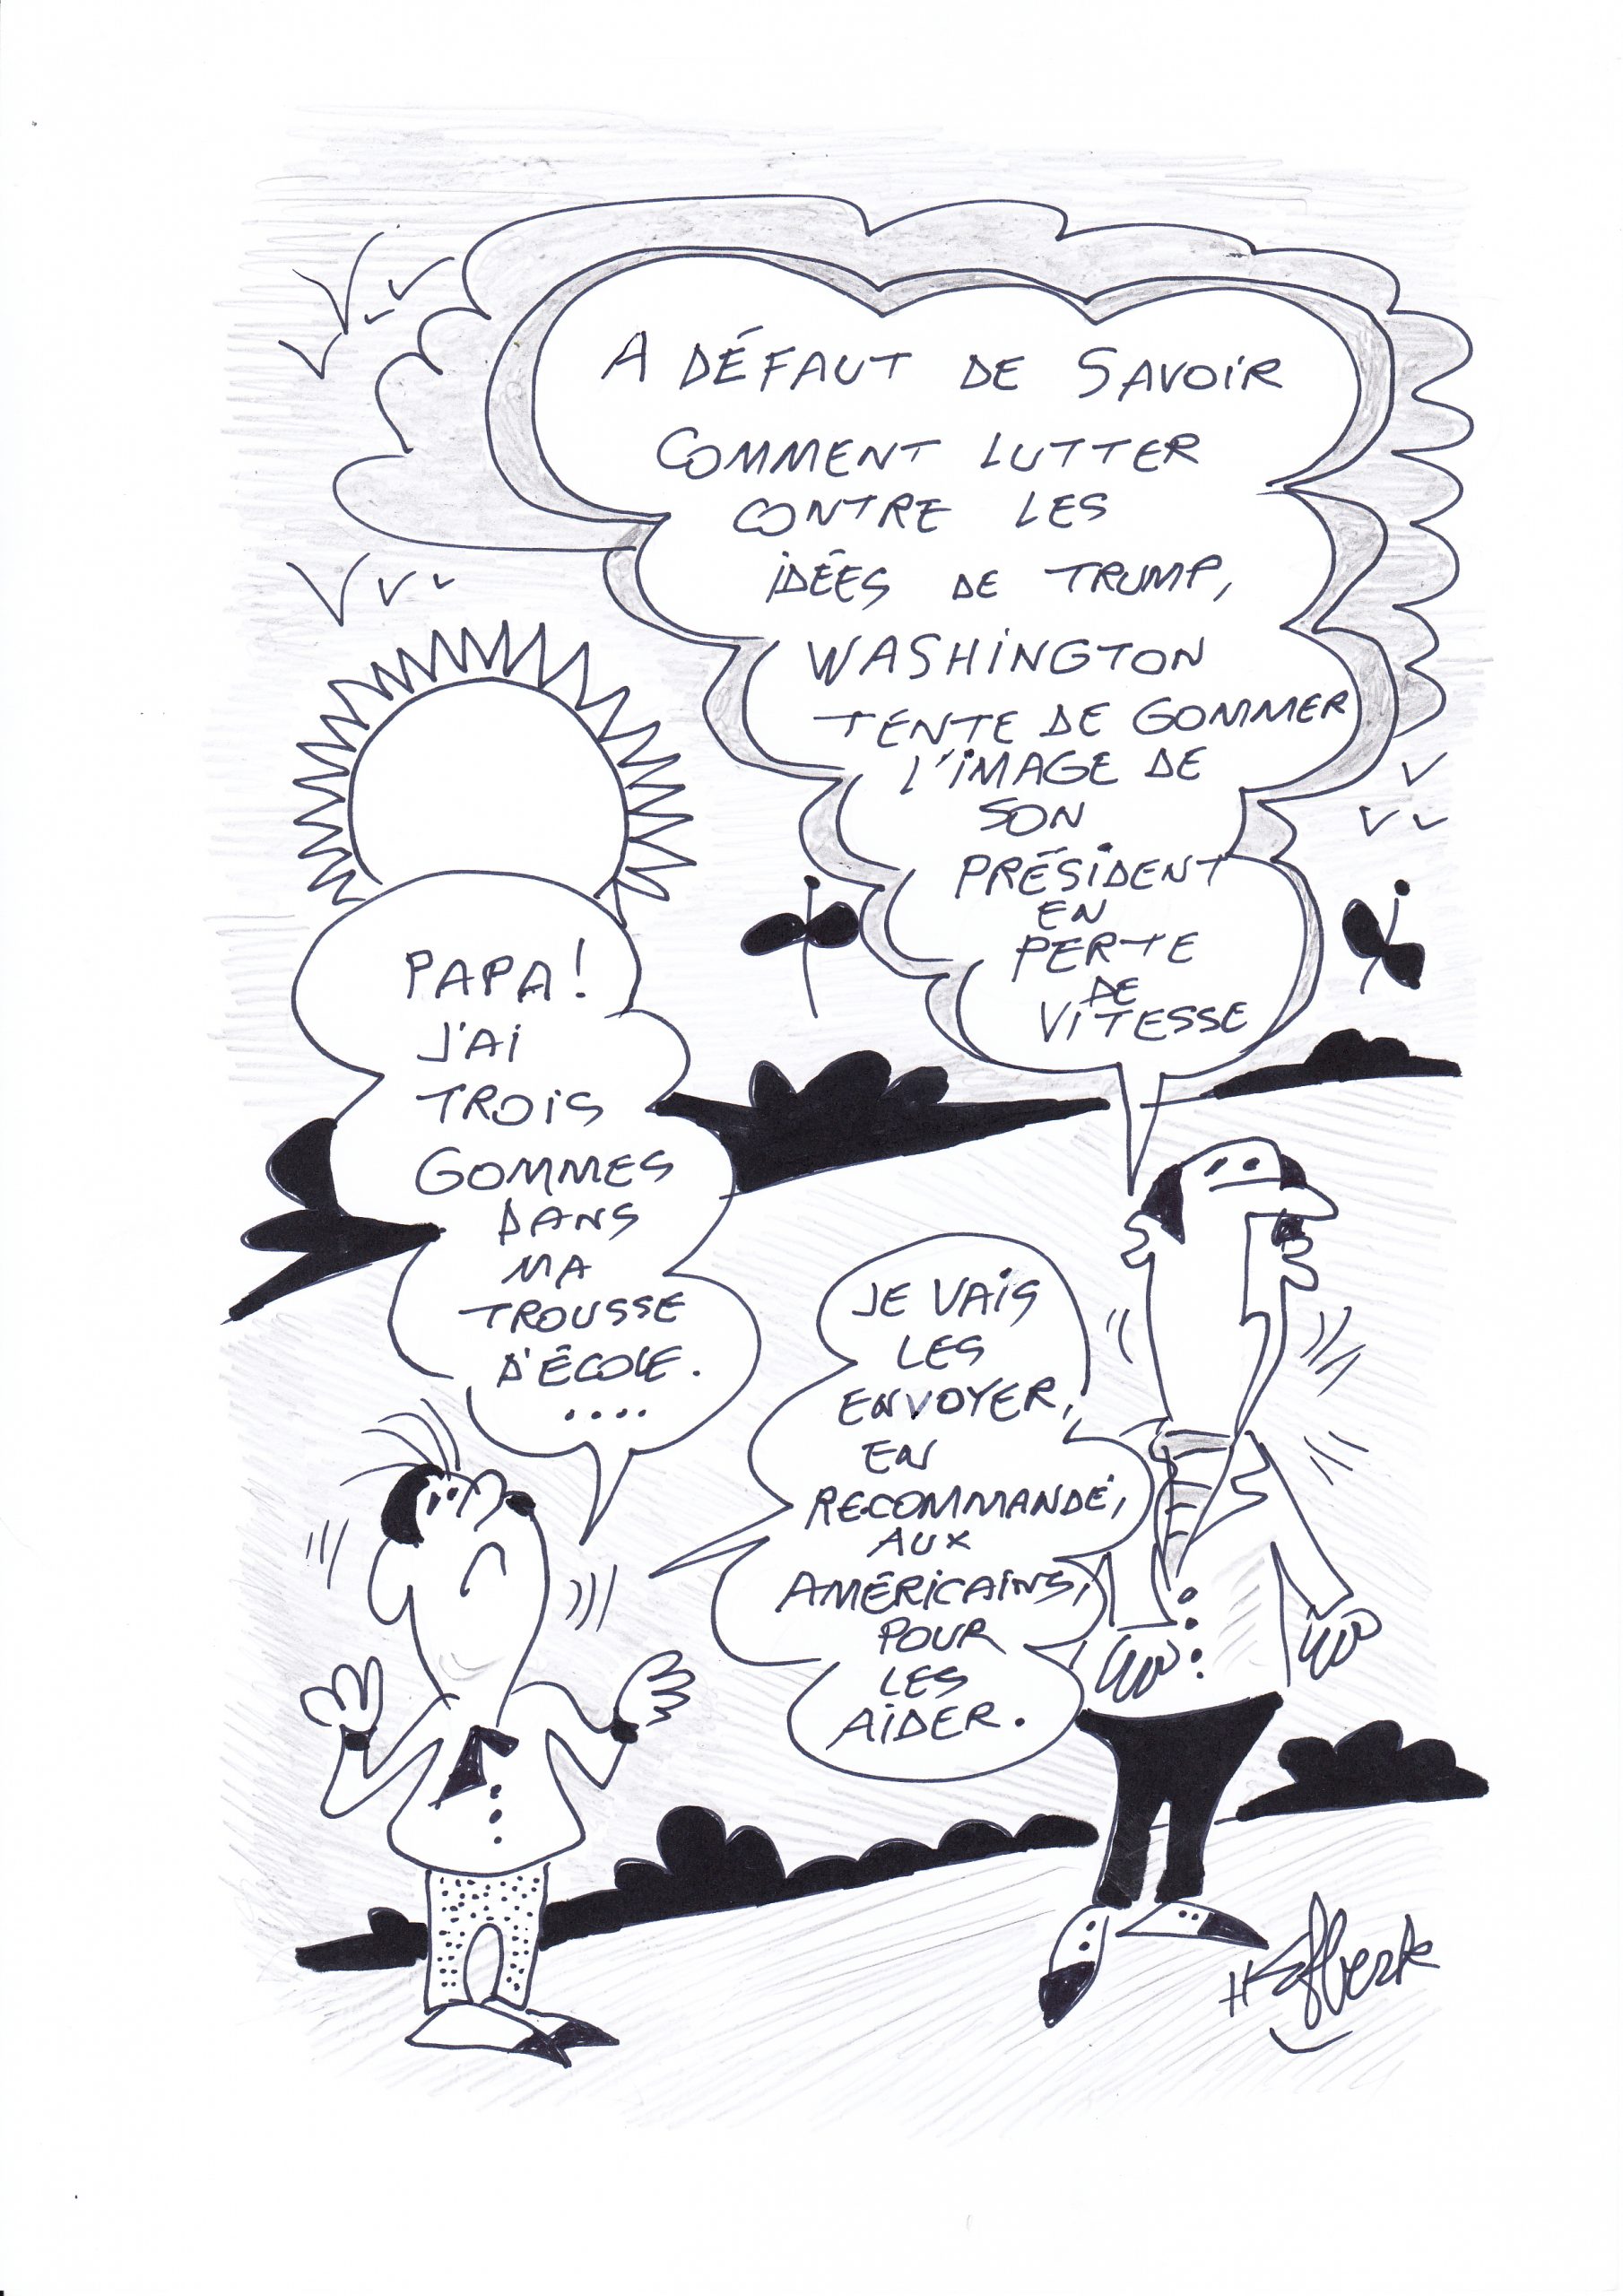 A DÉFAUT DE SAVOIR
COMMENT LUTTER
CONTRE LES
IDÉES DE TRUMP,
WASHINGTON
TENTE DE GOMMER
L'IMAGE DE
SON
PRÉSIDENT
EN
PERTE
DE
VITESSE
PAPA!
J'AI
TROIS
GOMMES
DANS
MA
TROUSSE
D'ÉCOLE.
....
JE VAIS
LES
ENVOYER,
EN
RECOMMANDÉ,
AUX
AMÉRICAINS,
POUR
LES
AIDER.